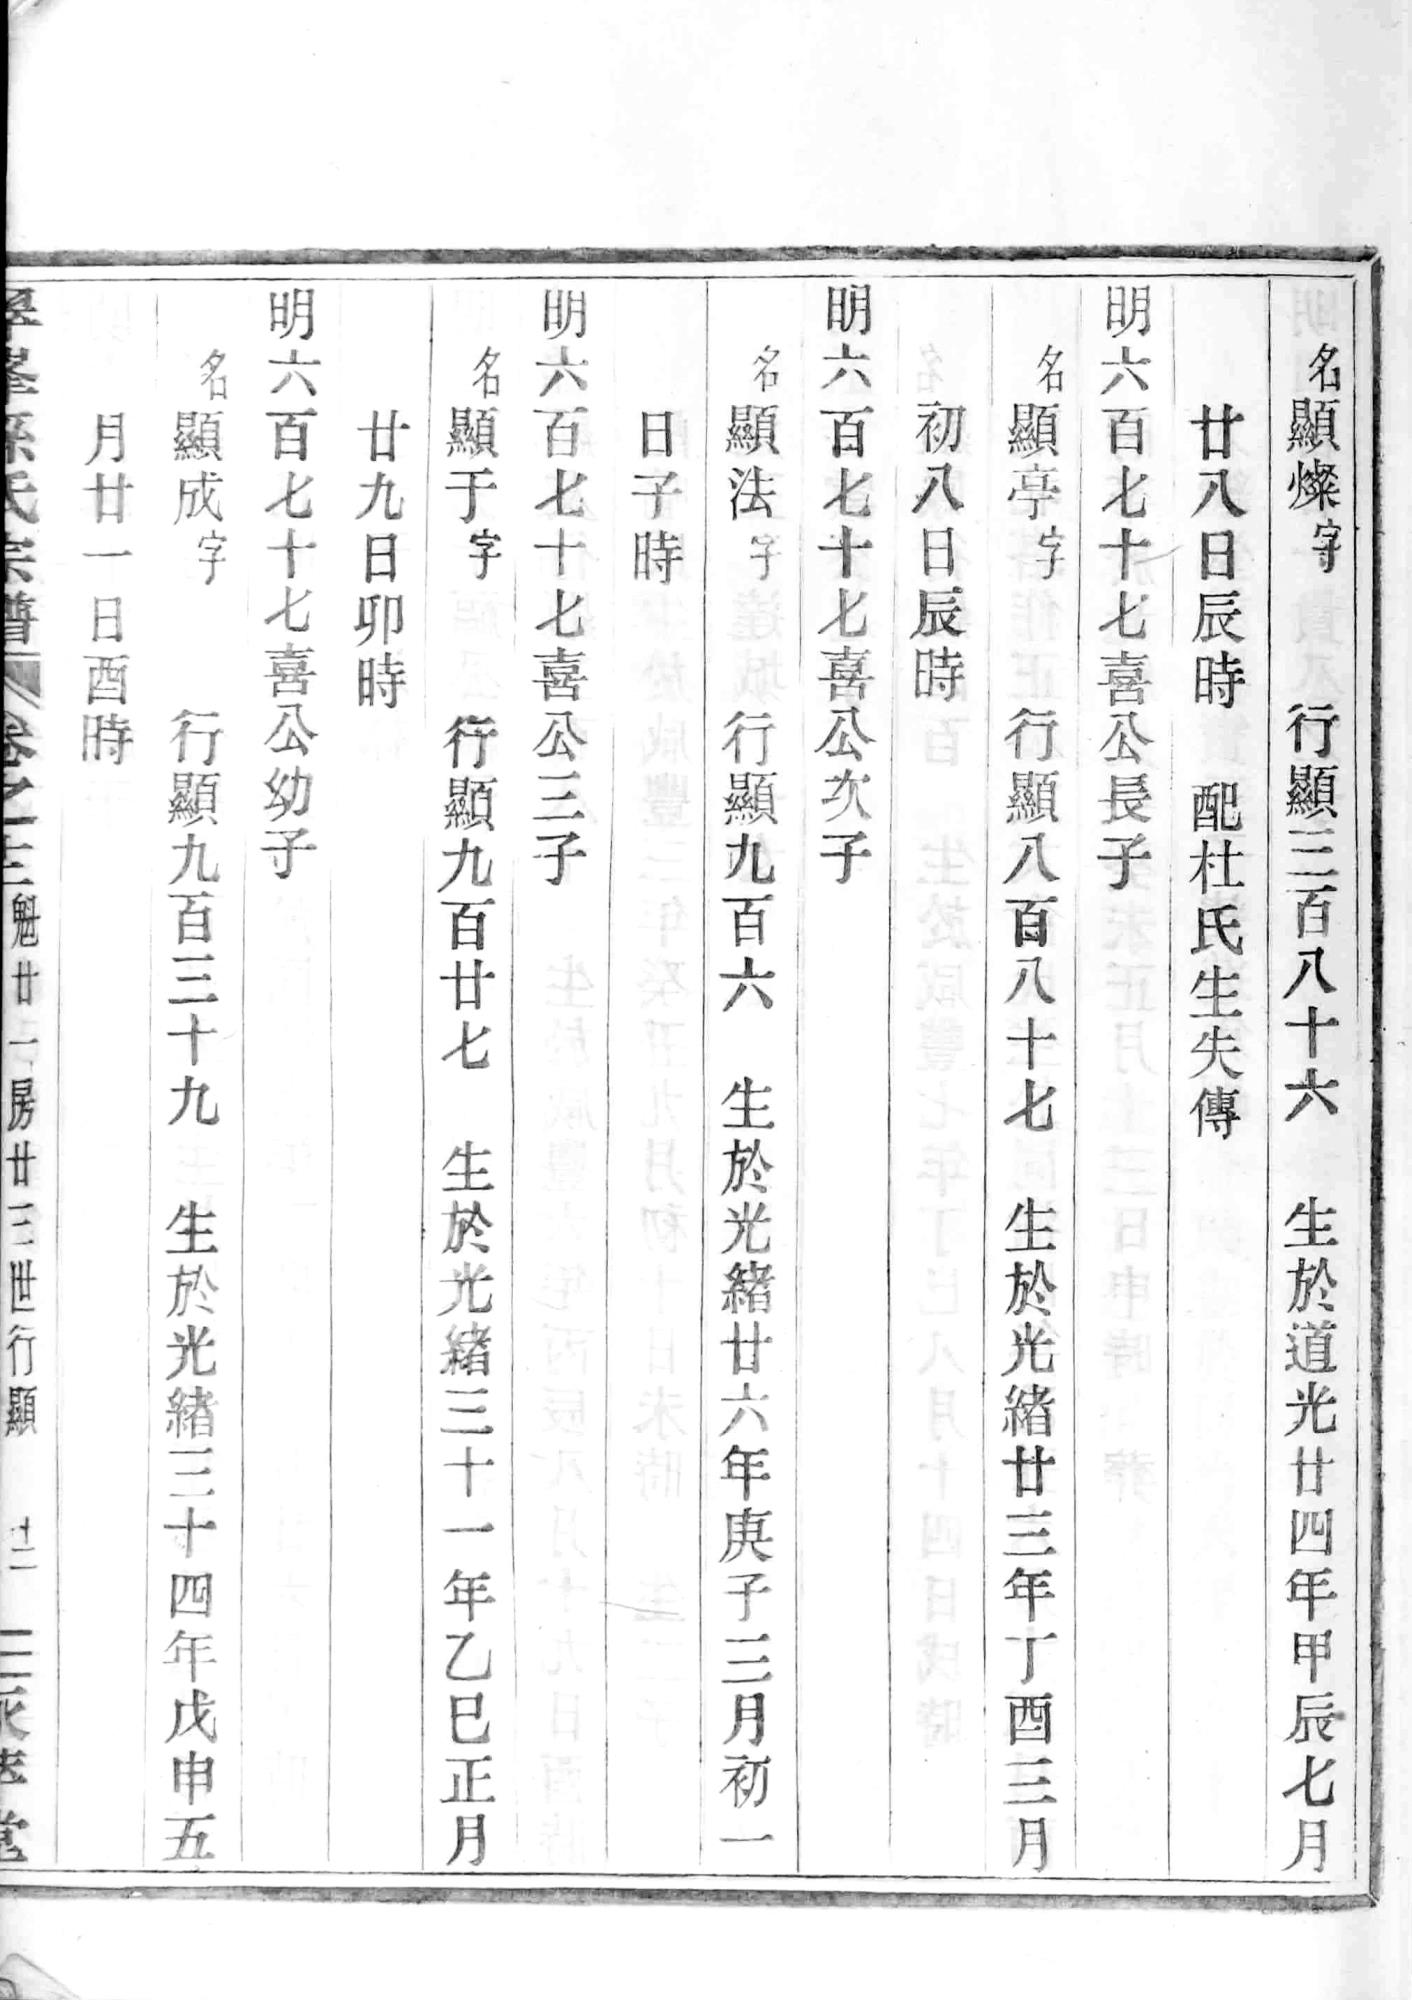 名顯燦字 行顯三百八十六 生於道光廿四年甲辰七月
廿八日辰時 配杜氏生失傳
明六百七十七喜公長子
名顯亭字 行顯八百八十七 生於光緒廿三年丁酉三月
初八日辰時
明六百七十七喜公次子
名顯法字 行顯九百六 生於光緒廿六年庚子三月初一
日子時
明六百七十七喜公三子
名顯于字 行顯九百廿七 生於光緒三十一年乙巳正月
廿九日卯時
明六百七十七喜公幼子
名顯成字 行顯九百三十九 生於光緒三十四年戊申五
月廿一日酉時
峯孫氏宗譜 卷之三 魁廿一房廿三世行顯 十二 堂